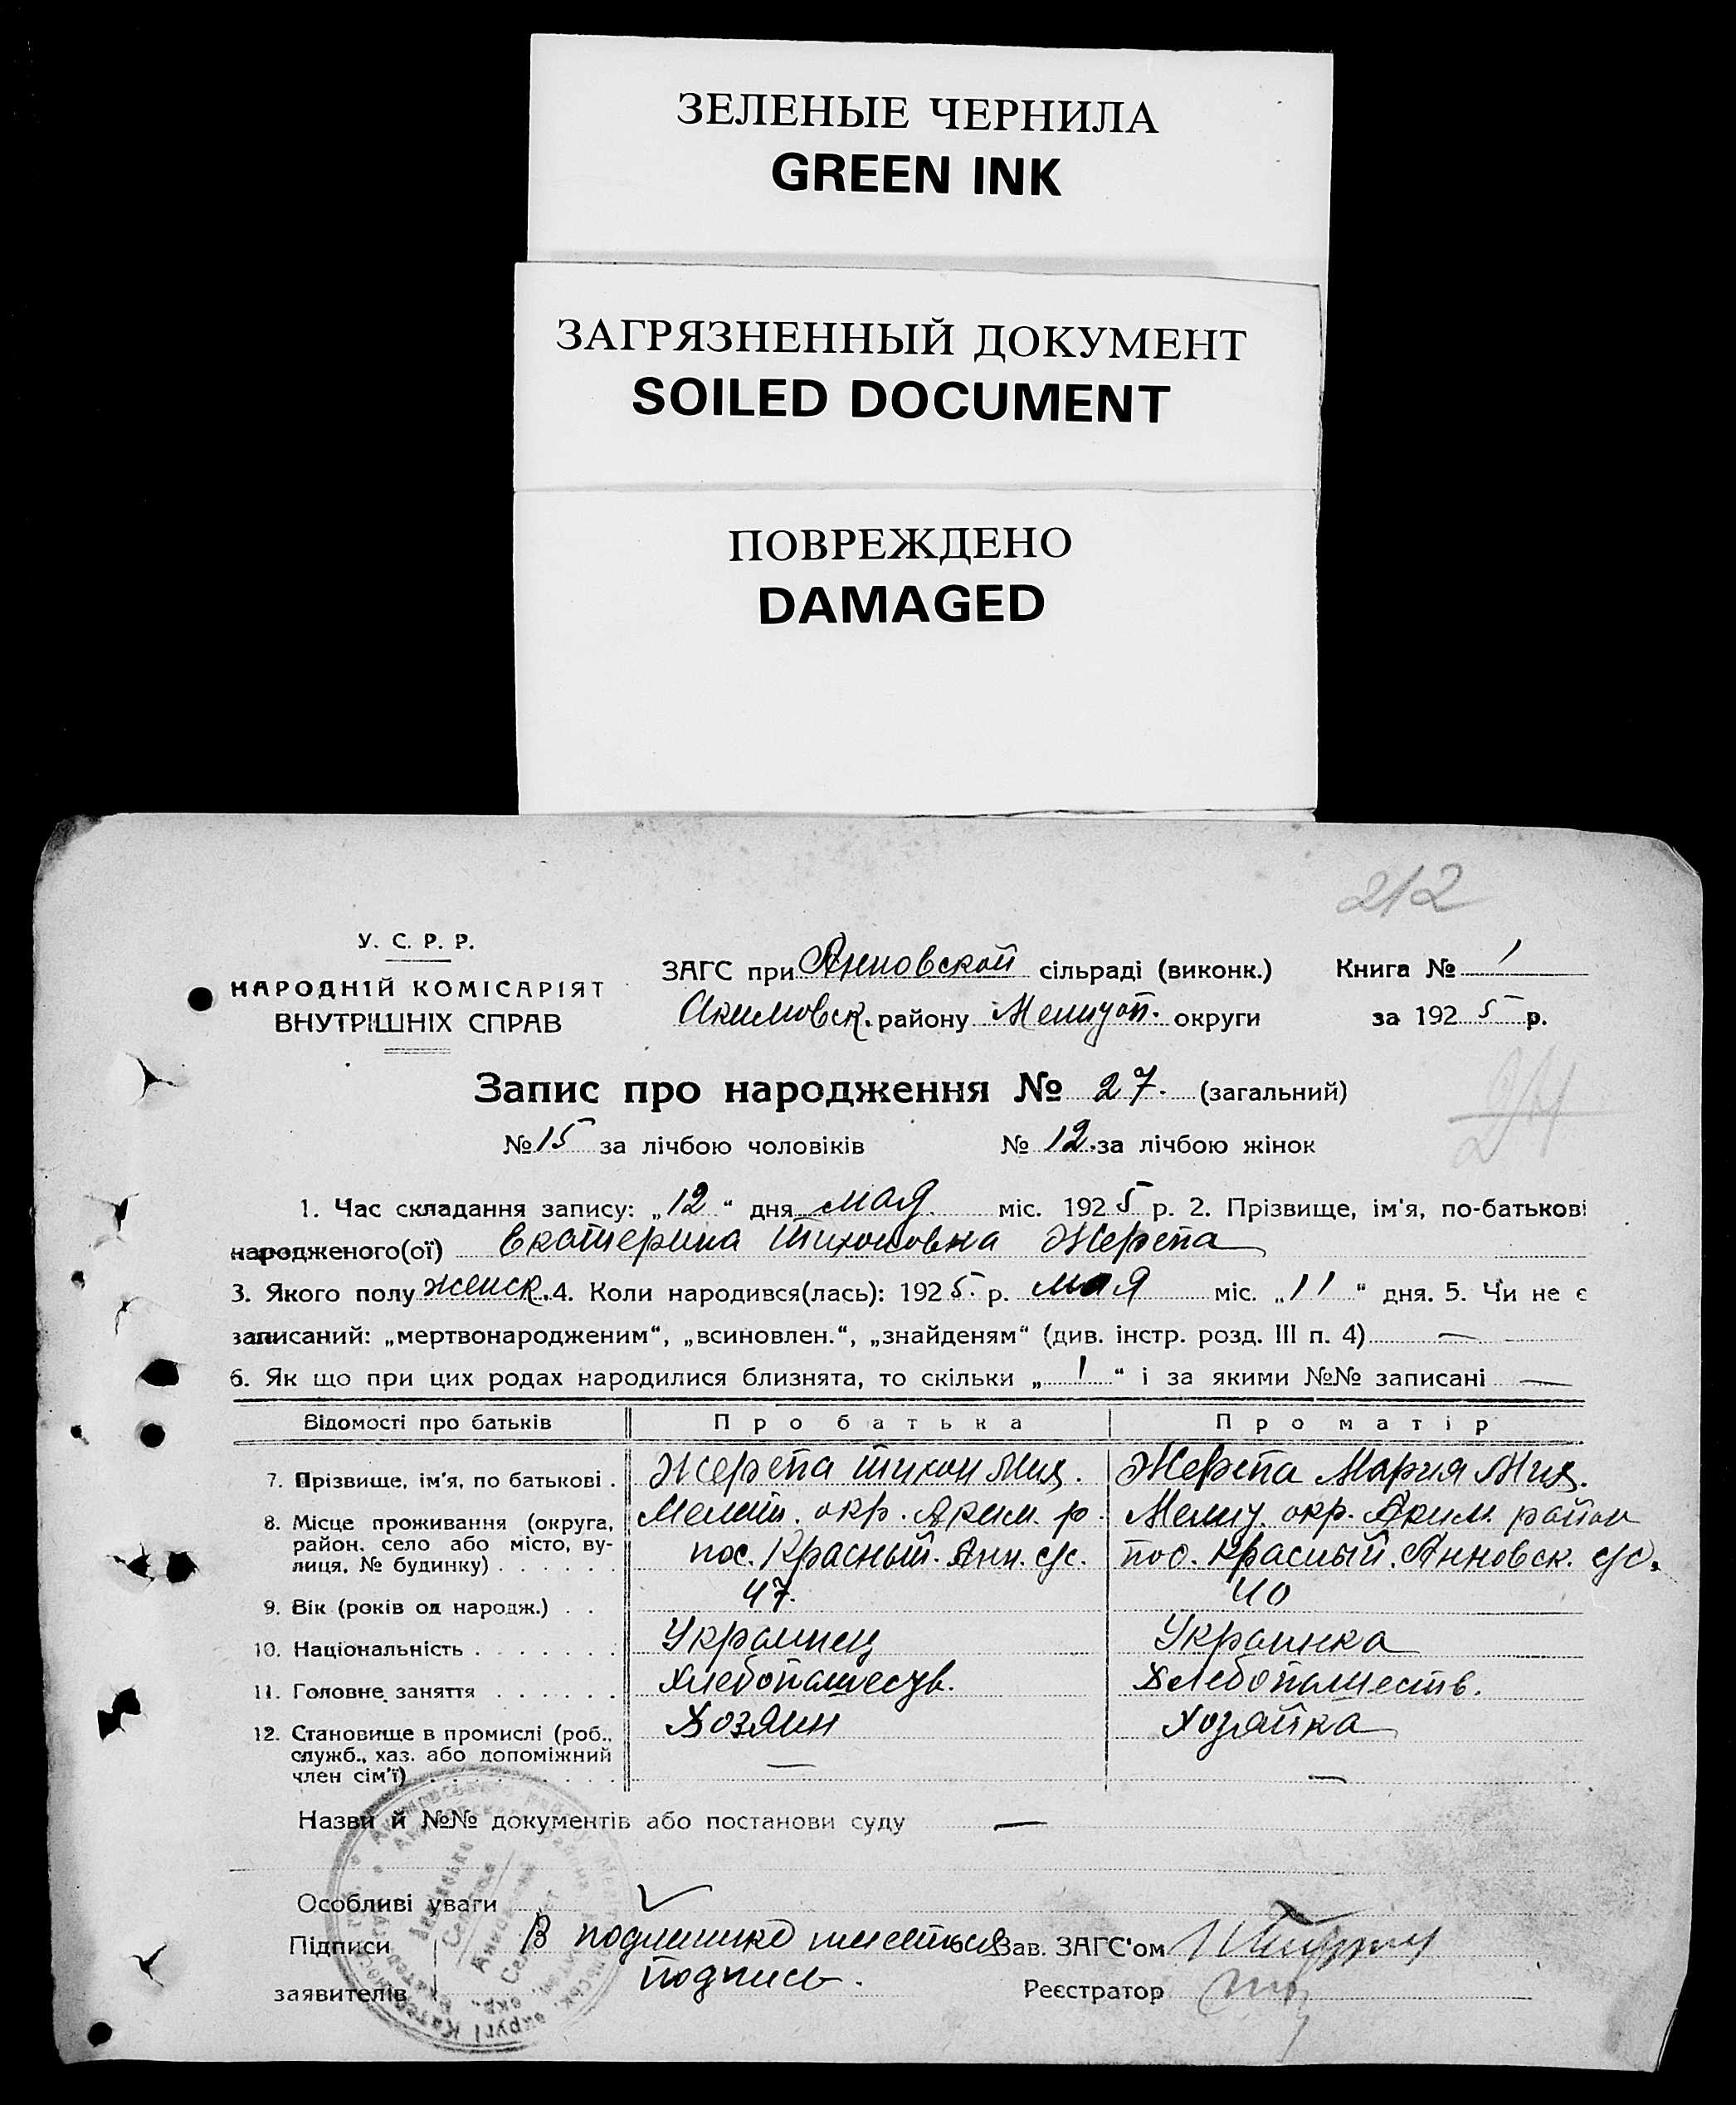 ЗЕЛЕНЫЕ ЧЕРНИЛА
GREEN INK
ЗАГРЯЗНЕННЫЙ ДОКУМЕНТ
SOILED DOCUMENT
ПОВРЕЖДЕНО
DAMAGED
212
У. С. Р. Р.
НАРОДНІЙ КОМІСАРІЯТ
ВНУТРІШНІХ СПРАВ
ЗАГС при Анновской сільраді (виконк.) Книга № 1
Акимовск. району Мелитоп. округи за 1925 р.
Запис про народження № 27. (загальний)
№ 15 за лічбою чоловіків № 12. за лічбою жінок
1. Час складання запису: „12“ дня мая міс. 1925 р. 2. Прізвище, ім'я, по-батькові
народженого(ої) Екатерина Тихоновна Жерепа
3. Якого полу женск. 4. Коли народився(лась): 1925 р. мая міс. „11“ дня. 5. Чи не є
записаний: „мертвонародженим“, „всиновлен.“, „знайденям“ (див. інстр. розд. III п. 4) —
6. Як що при цих родах народилися близнята, то скільки „1“ і за якими №№ записані —
Відомості про батьків Про батька Про матір
7. Прізвище, ім'я, по батькові . Жерепа Тихон Мих. Жерепа Мария Мих.
8. Місце проживання (округа, Мелит. окр. Аким. р. Мелит. окр. Аким. район
район, село або місто, вулиця, № будинку) . . . . . . пос. Красный. Анн. с/с. пос. Красный. Анновск. с/с.
9. Вік (років од народж.) . . 47. 40
10. Національність . . . . . . . Украинец Украинка
11. Головне заняття . . . . . . Хлебопашеств. Хлебопашеств.
12. Становище в промислі (роб., Хозяин Хозяйка
служб., хаз. або допоміжний
член сім'ї) . . . . . . . . . — —
Назви й №№ документів або постанови суду —
Особливі уваги
Підписи В подлиннике имеется Зав. ЗАГС'ом
заявителів подпись. Реєстратор